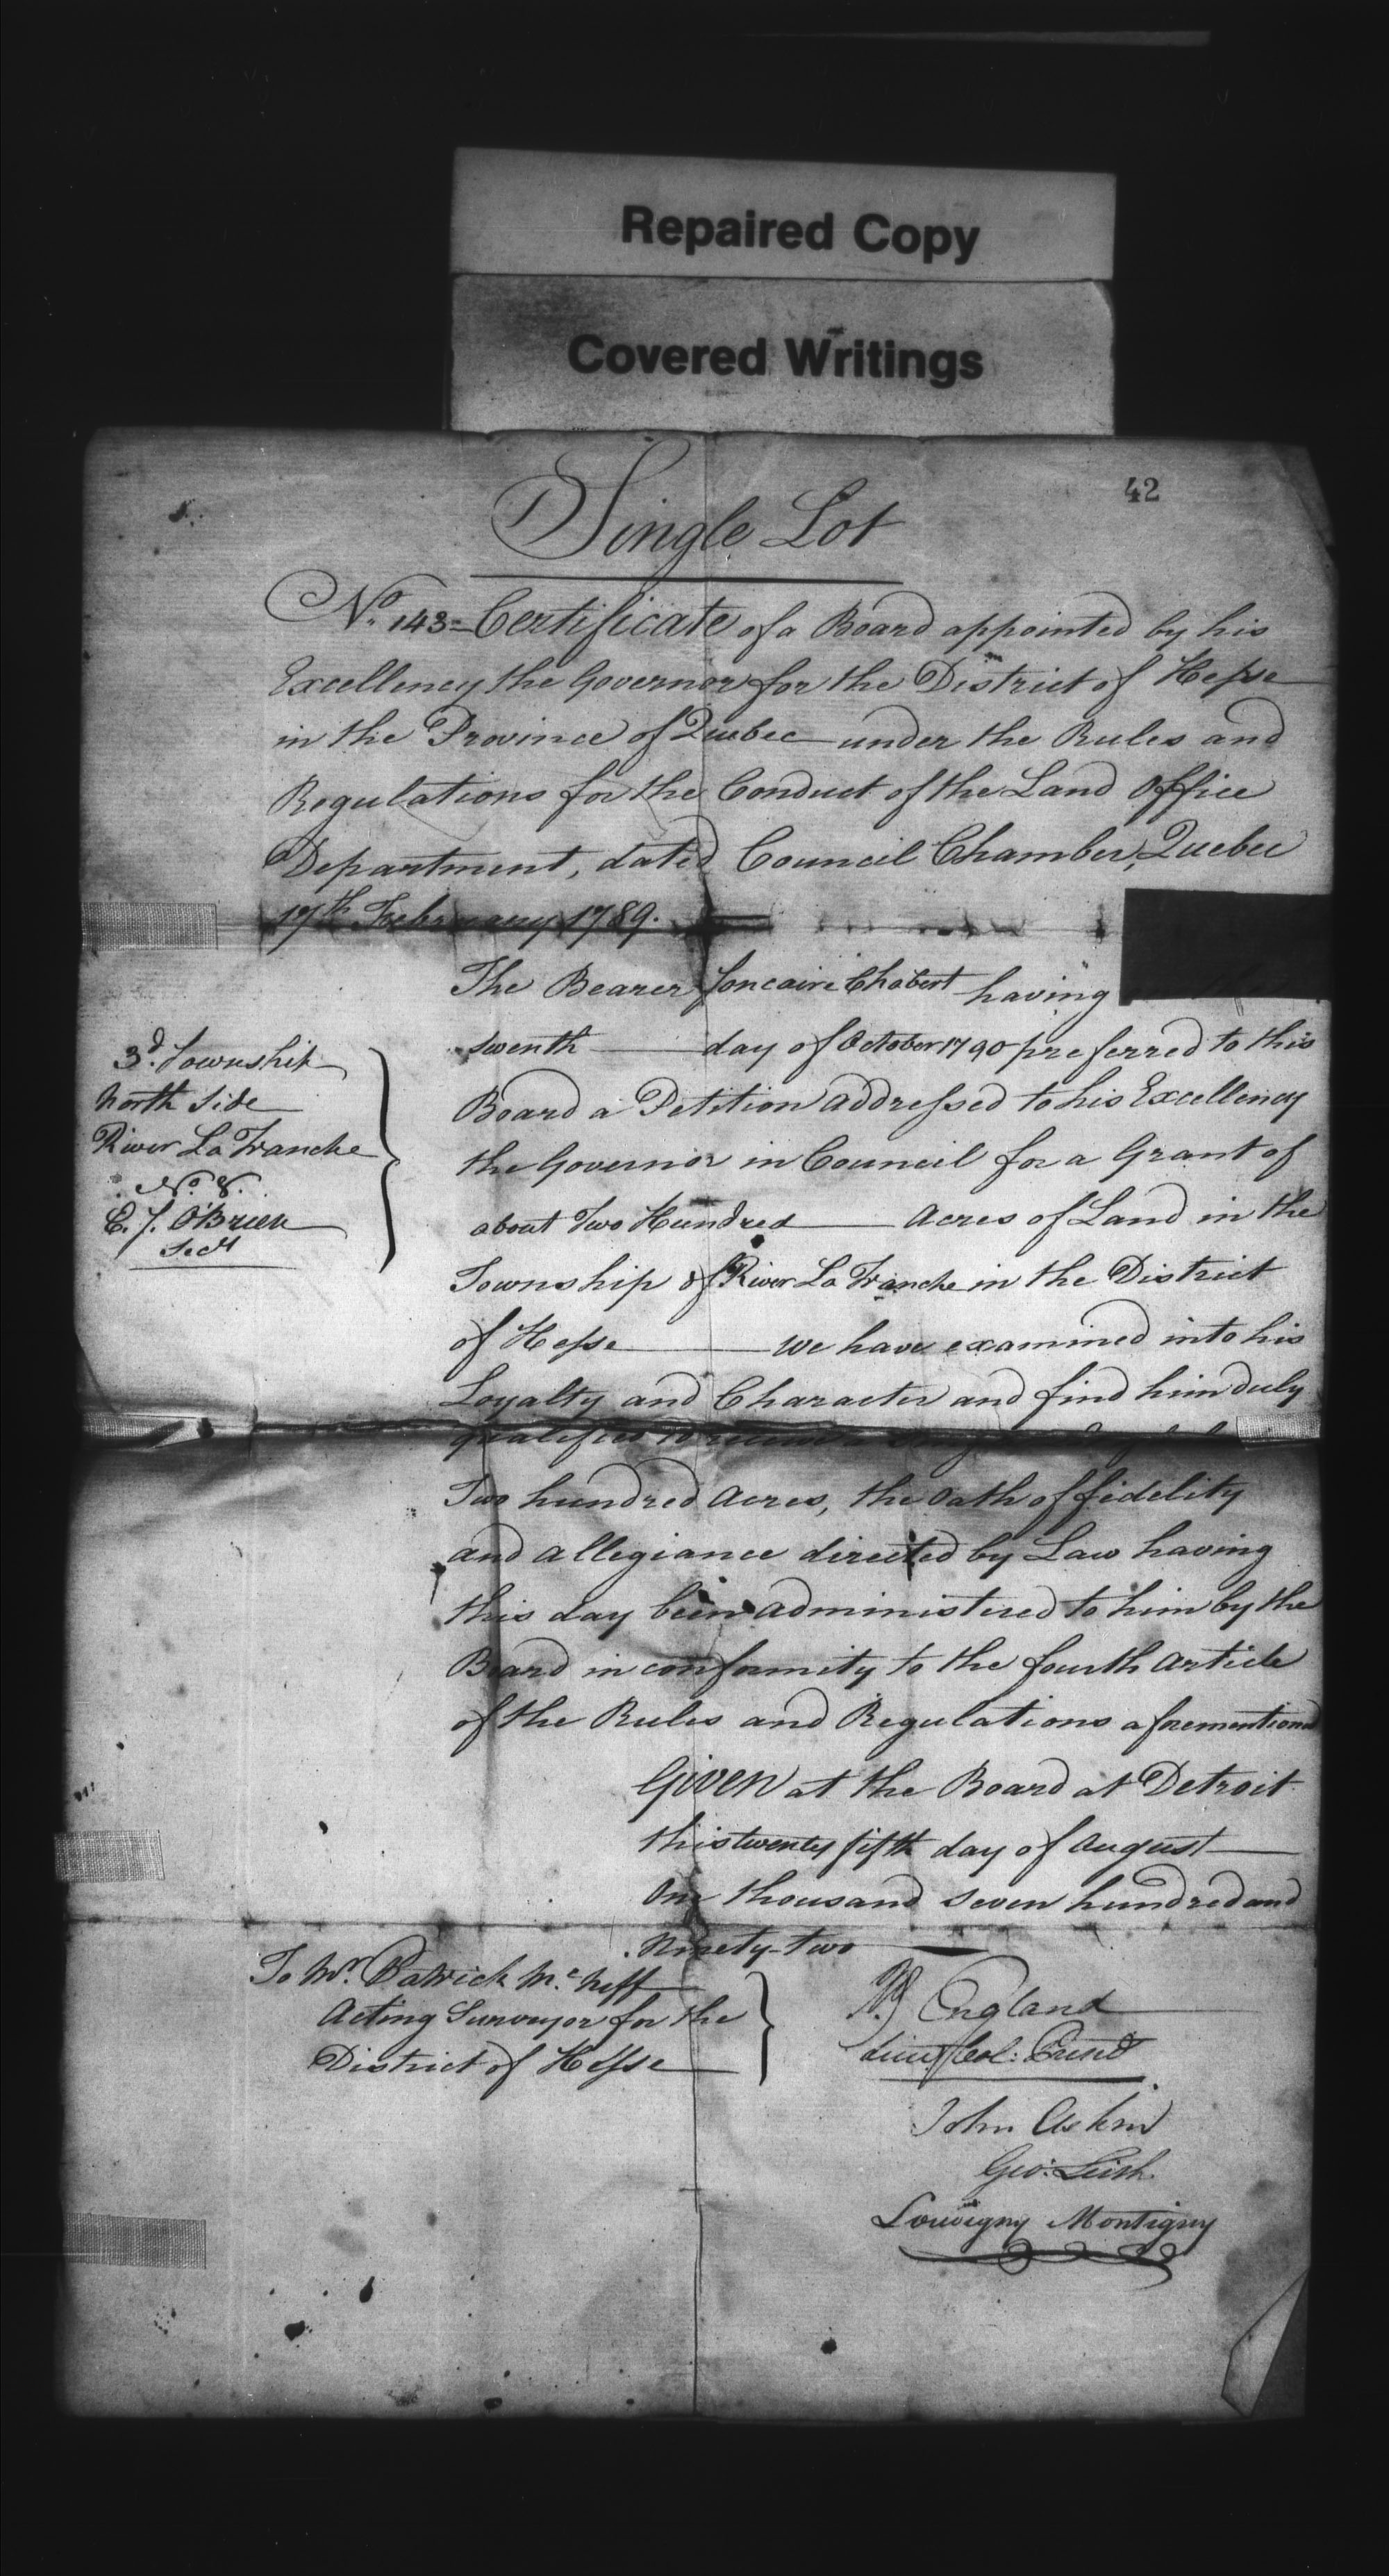 Repaired Copy
Covered Writings
42
Single Lot
No. 143 = Certificate of a Board appointed by his
Excellency the Governor for the District of Hesse
in the Province of Quebec under the Rules and
Regulations for the Conduct of the Land Office
Department, dated Council Chamber, Quebec
17th February 1789.
The Bearer Joncaire Chabert having
day of October 1790 preferred to this
Board a Petition addressed to his Excellency
the Governor in Council for a Grant of
about Two Hundred Acres of Land in the
Township of River La Tranche in the District
of Hesse We have examined into his
Loyalty and Character and find him duly
qualified to receive
Two hundred Acres, the Oath of fidelity
and allegiance directed by Law having
this day been administered to him by the
Board in conformity to the fourth Article
of the Rules and Regulations aforementioned
Given at the Board at Detroit
this twenty fifth day of August
One thousand seven hundred and
Ninety-two
3d. Township
North Side
River La Tranche
No. 8.
E. J. O'Brien
Secy
To Mr. Patrick McNiff
Acting Surveyor for the
District of Hesse
England
Lieut Col: Presdt
John Askin
Geo: Leith
Louvigny Montigny